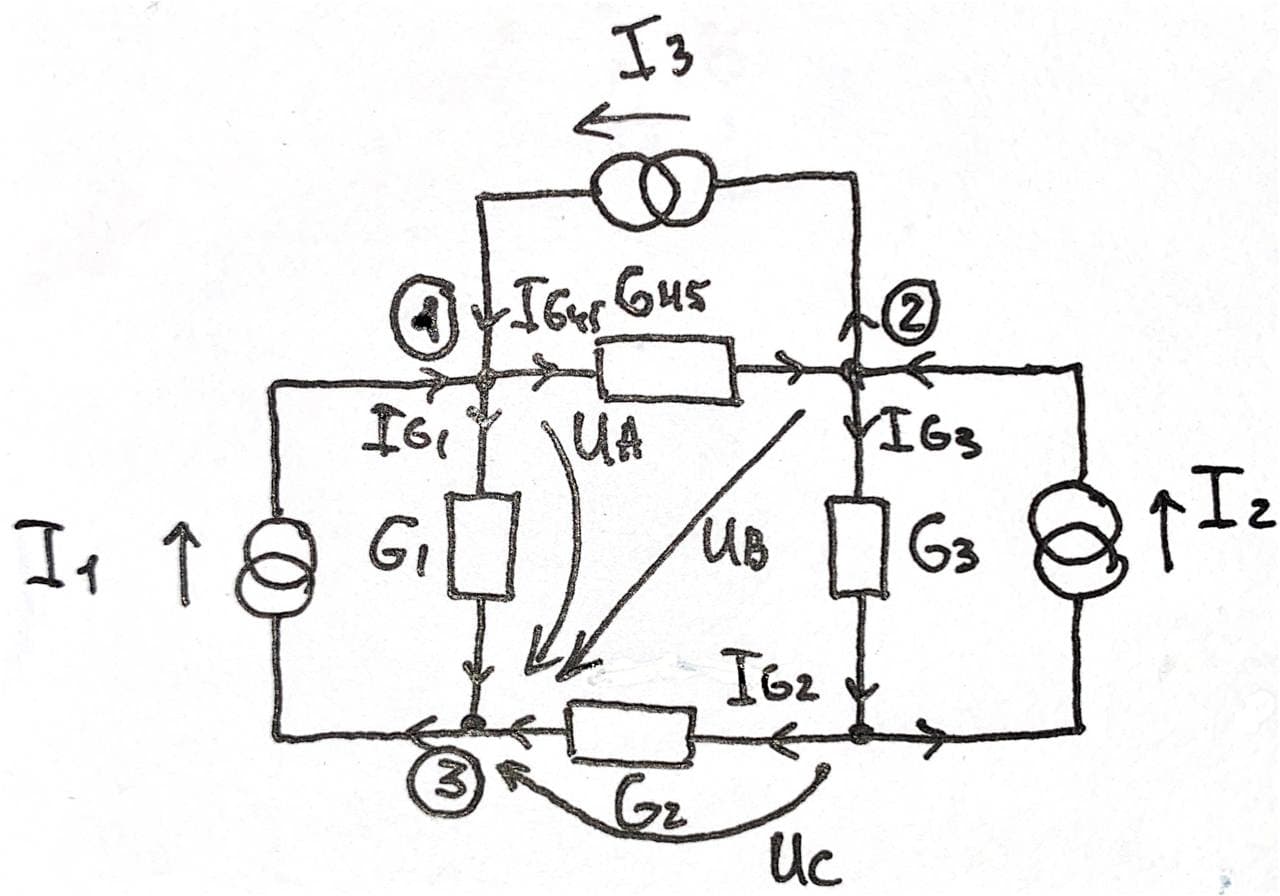 I3
1 IG45 G45 2
IG1 UA IG3
I1 G1 UB G3 I2
IG2
3 G2
UC